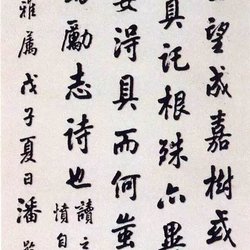 望成嘉樹或
真託根殊亦異
安得具而何蚩
勵志詩也讀
憤自
雅屬戊子夏日潘